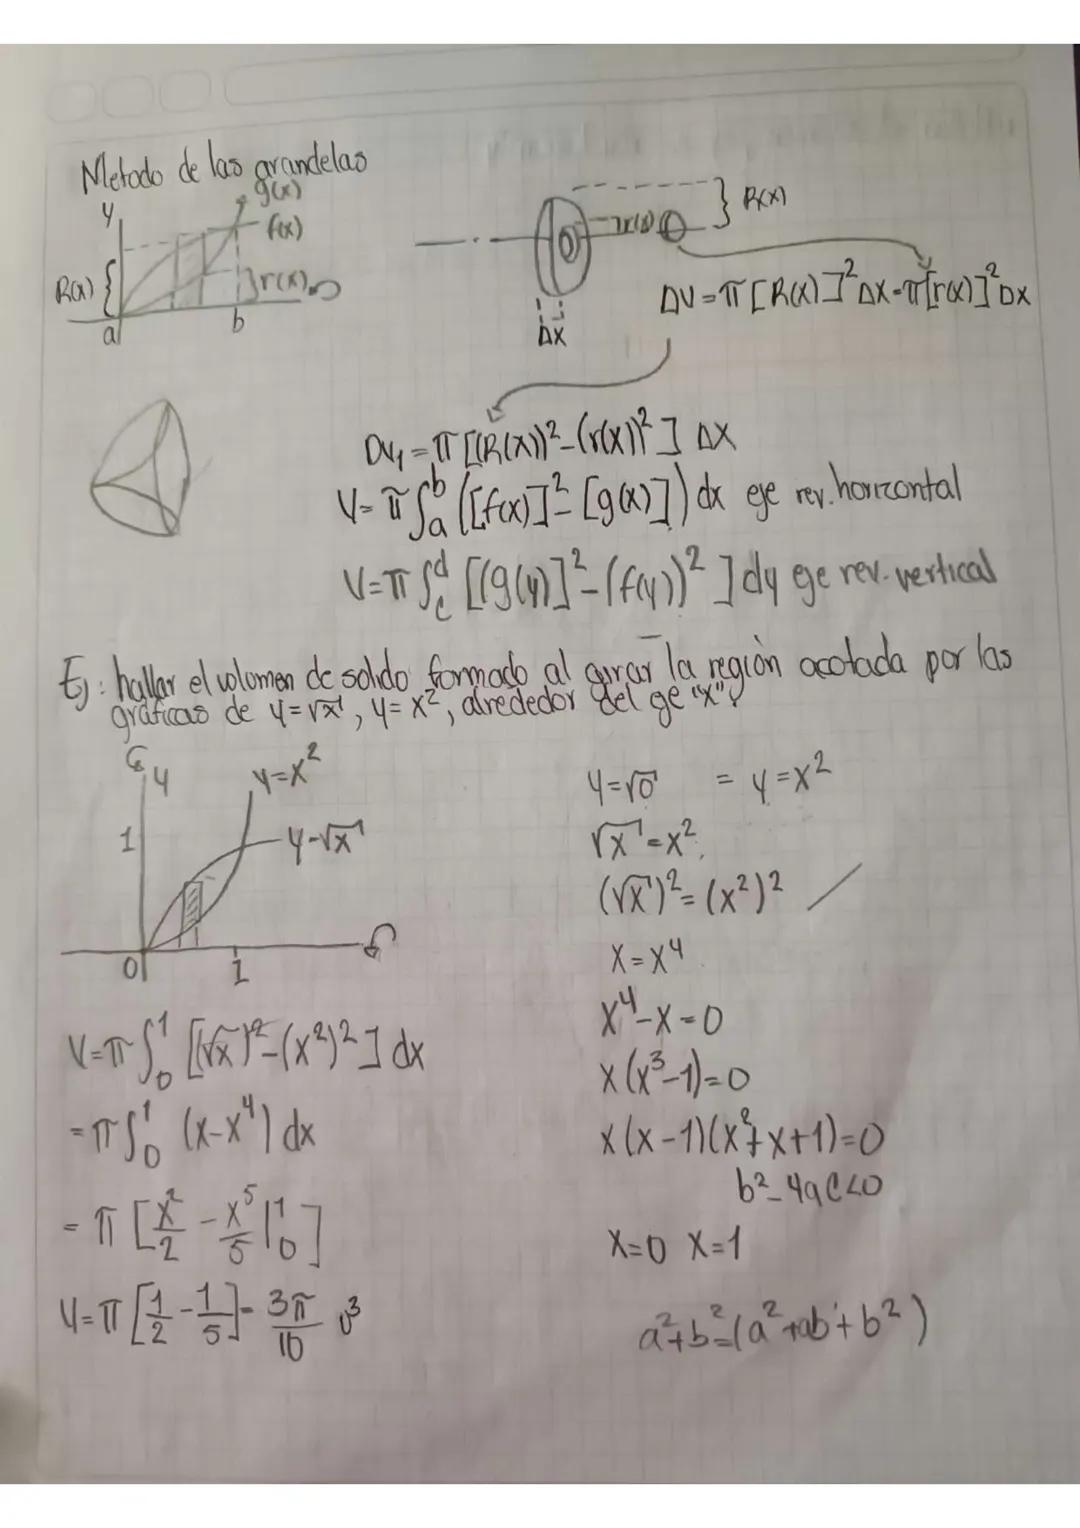 Metodo de las arandelas
y
g(x)
f(x)
R(x) {
}r(x)
a
b
r(x)
} R(x)
Δx
ΔV = π [R(x)]² Δx - π[r(x)]² Dx
DV₁ = π [(R(x))² - (r(x))² ] Δx
V = π ∫ₐᵇ ([f(x)]² - [g(x)]) dx eje rev. horizontal
V = π ∫_c^d [(g(y)]² - (f(y))² ] dy eje rev. vertical
Ej: hallar el volumen de solido formado al girar la región acotada por las
gráficas de y=√x, y=x², alrededor del eje "x".
y
y=x²
1
y=√x
0
1
y=√0 = y=x²
√x = x²
(√x)² = (x²)²
x = x⁴
x⁴-x=0
x(x³-1)=0
x(x-1)(x²+x+1)=0
b²-4ac<0
x=0 x=1
a²+b²=(a²+ab+b²)
V=π ∫₀¹ [(√x)²-(x²)²] dx
=π ∫₀¹ (x-x⁴) dx
= π [x²/2 - x⁵/5 |₀¹]
V=π [1/2 - 1/5] = 3π/10 u³